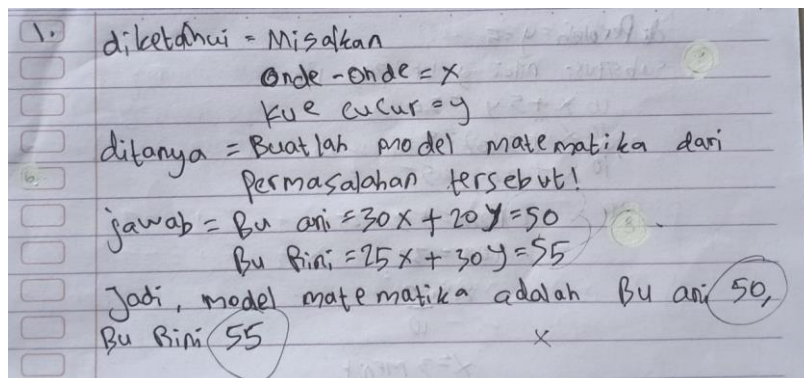 1. diketahui = Misalkan
Onde-onde = x
kue cucur = y
ditanya = Buatlah model matematika dari
Permasalahan tersebut!
jawab = Bu ani = 30x + 20y = 50
Bu Rini = 25x + 30y = 55
Jadi, model matematika adalah Bu ani 50,
Bu Rini 55
x